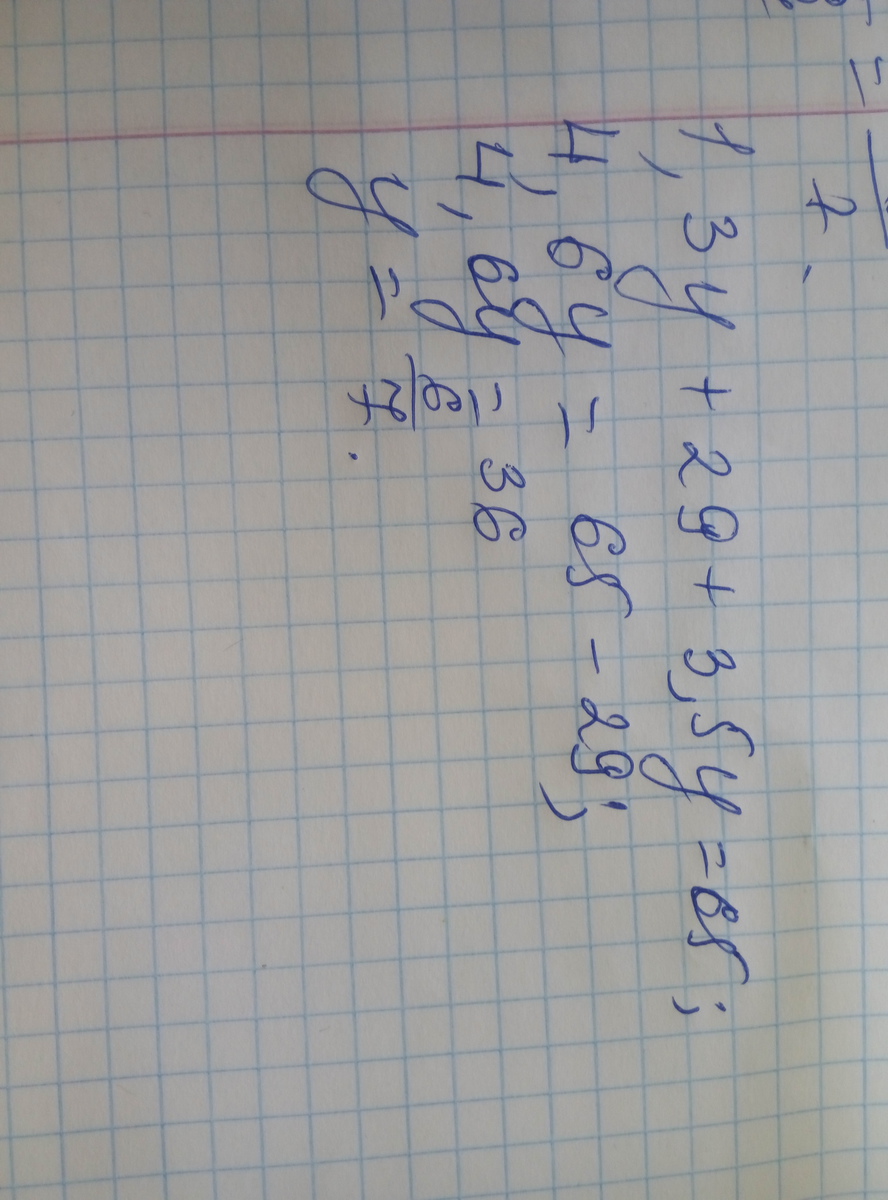 1,3y + 29 + 3,5y = 65;
4,6y = 65 - 29;
4,6y = 36
y = 6/7.